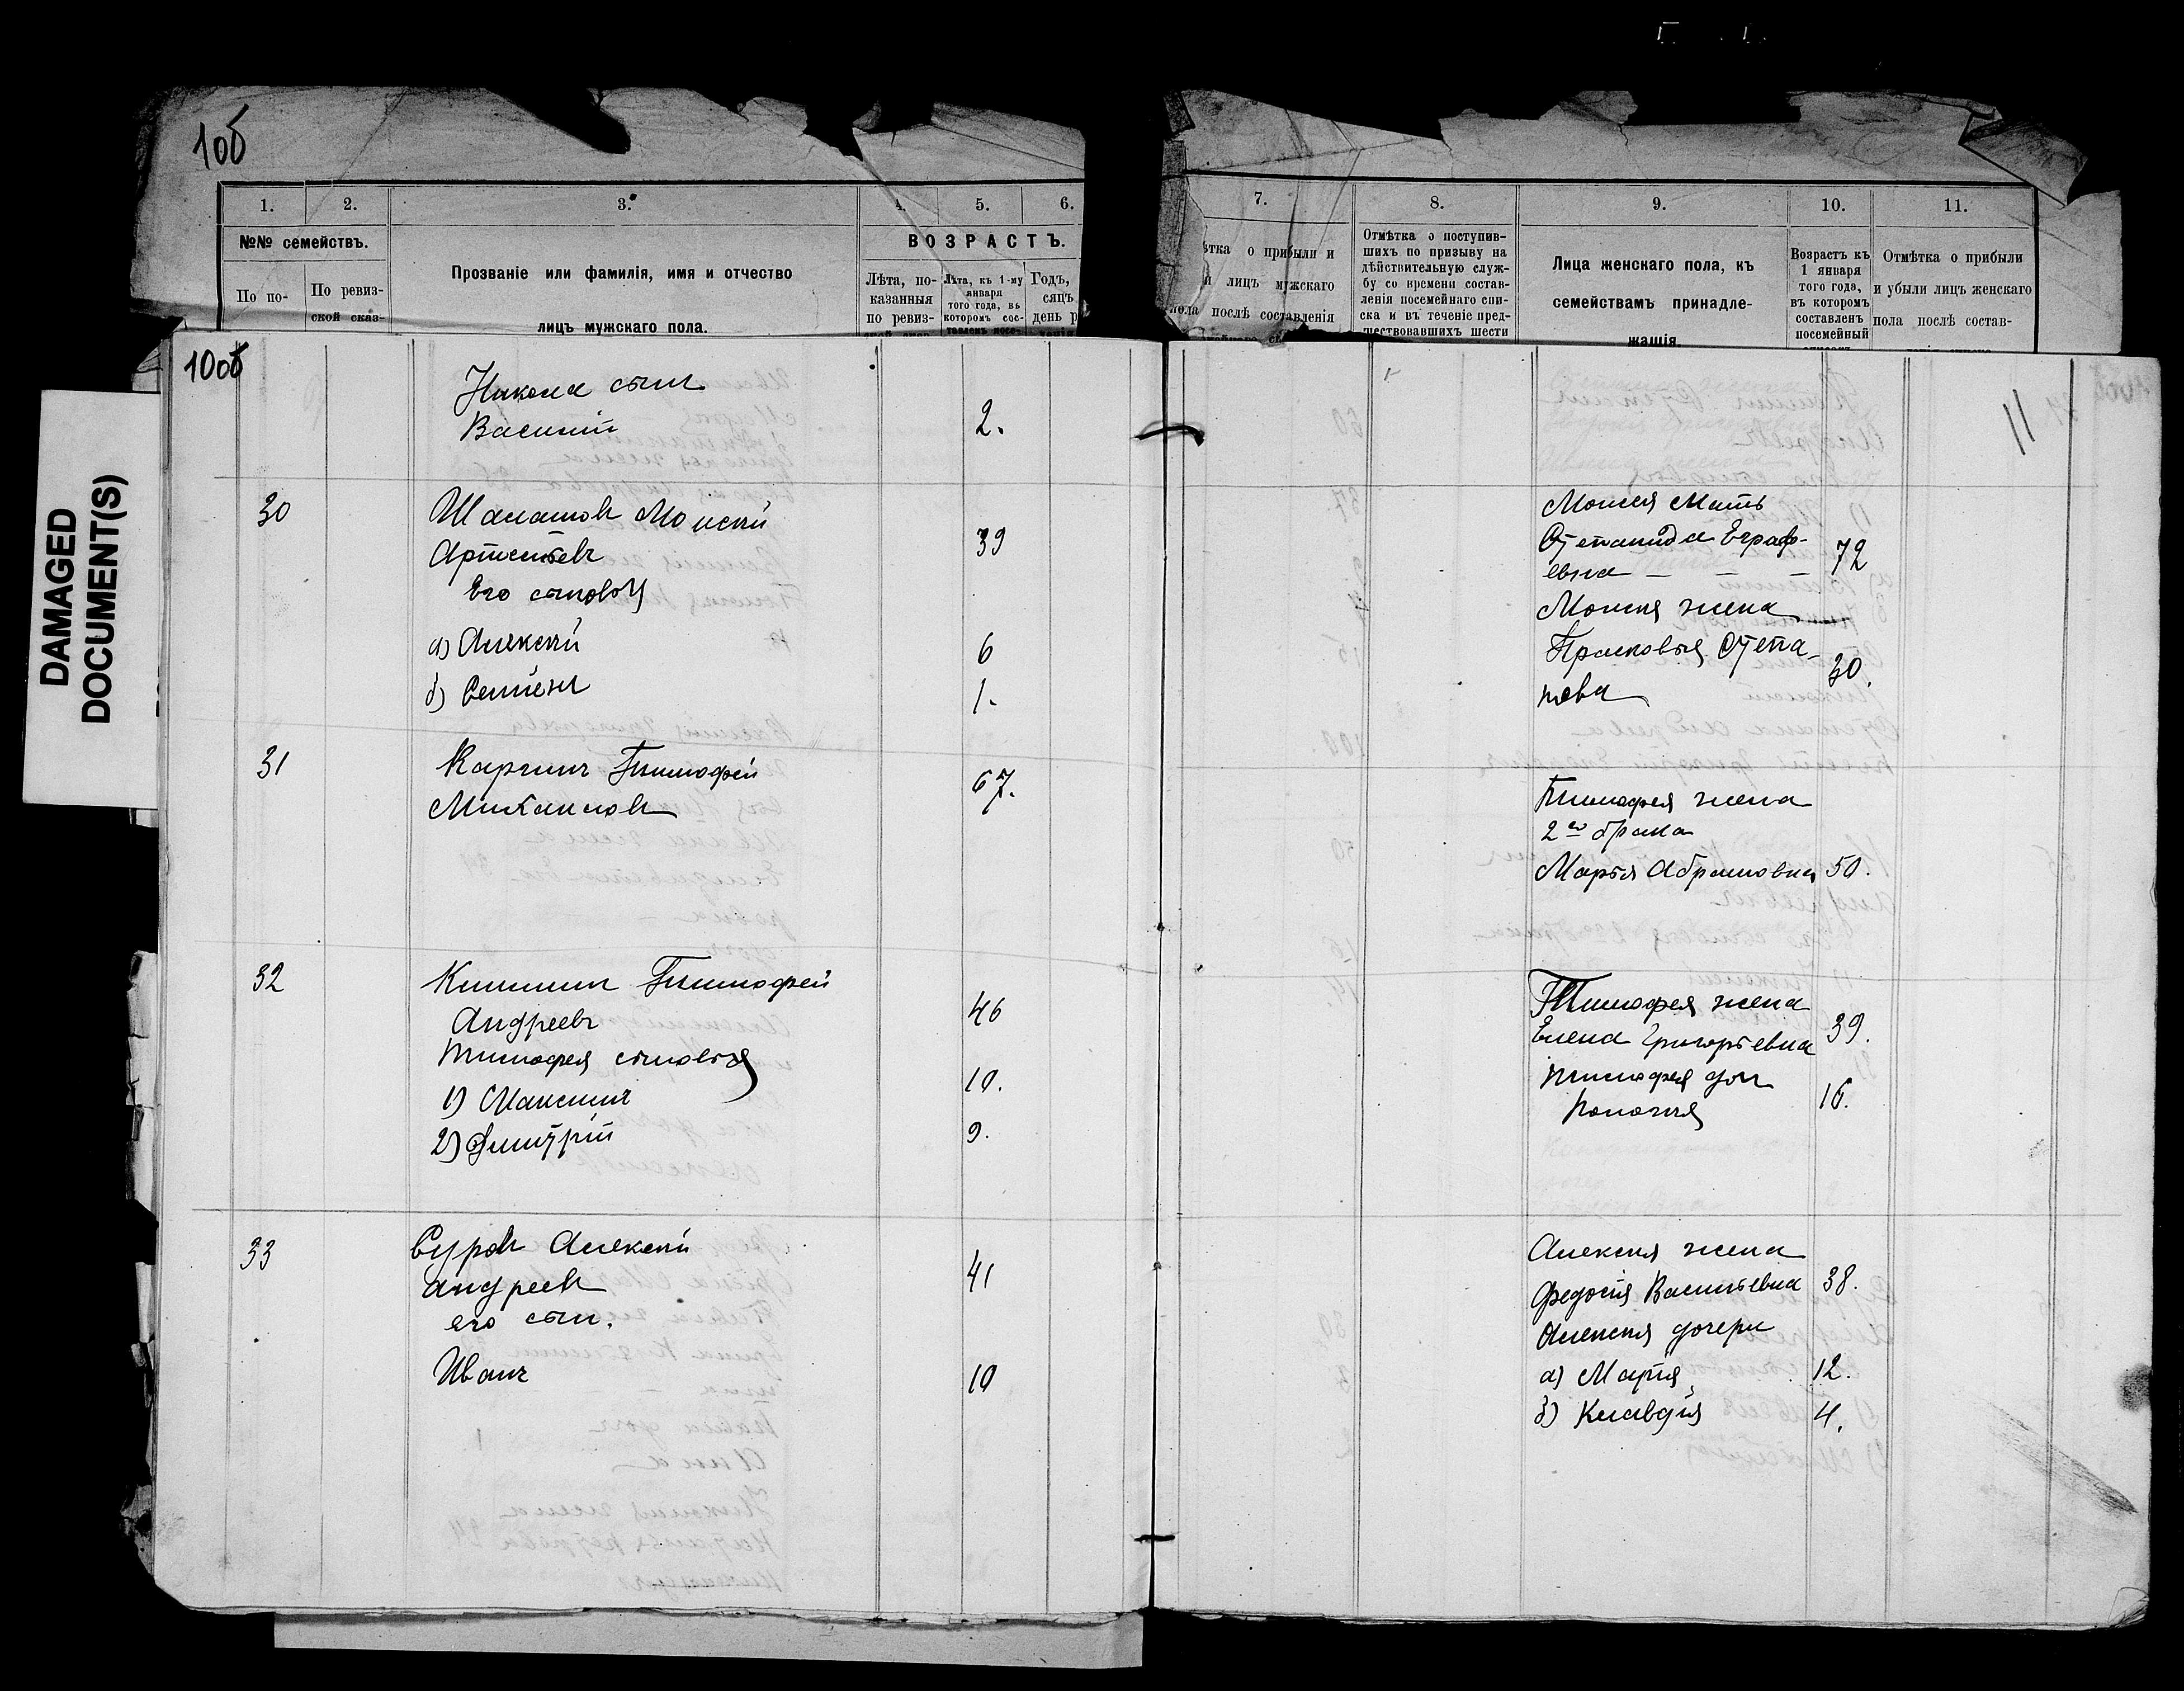 10б
1. 2. 3. 4. 5. 6.
№№ семействъ.
По по-
По ревиз-
ской сказ-
Прозваніе или фамилія, имя и отчество
лицъ мужскаго пола.
ВОЗРАСТЪ.
Лѣта, по-
казанныя
по ревиз-
Лѣта, къ 1-му
января
того года, въ
которомъ сос-
тавленъ посе-
Годъ,
сяцъ
день р
7. 8. 9. 10. 11.
ѣтка о прибыли и
и лицъ мужскаго
пола послѣ составленія
Отмѣтка о поступив-
шихъ по призыву на
дѣйствительную служ-
бу со времени состав-
ленія посемейнаго спи-
ска и въ теченіе пред-
шествовавшихъ шести
Лица женскаго пола, къ
семействамъ принадле-
жащія.
Возрастъ къ
1 января
того года,
въ которомъ
составленъ
посемейный
Отмѣтка о прибыли
и убыли лицъ женскаго
пола послѣ состав-
DAMAGED
DOCUMENT(S)
10об
Никола сынъ
Василій 2.
30 Шалашовъ Моисей
Артемьевъ 39
Его сыновья
а) Алексѣй 6
б) Семёнъ 1.
31 Каргинъ Тимофей 67.
Михаиловъ
32 Кишкин Тимофей
Андреевъ 46
Тимофея сыновья
1) Максимъ 10.
2) Дмитрій 9.
33 Суровъ Алексѣй
Андреевъ 41
его сынъ.
Иванъ 10
11
Моисея Мать
Степанида Евграф-
евна — — — 72
Моисея жена
Прасковья Степа-
нова 30.
Тимофея жена
2го брака
Марья Абрамовна 50.
Тимофея жена
Елена Григорьевна 39.
Тимофея доч
16.
Алексея жена
Федосія Васильевна 38.
Алексея дочери
а) Марія 12.
б) Клавдія 4.